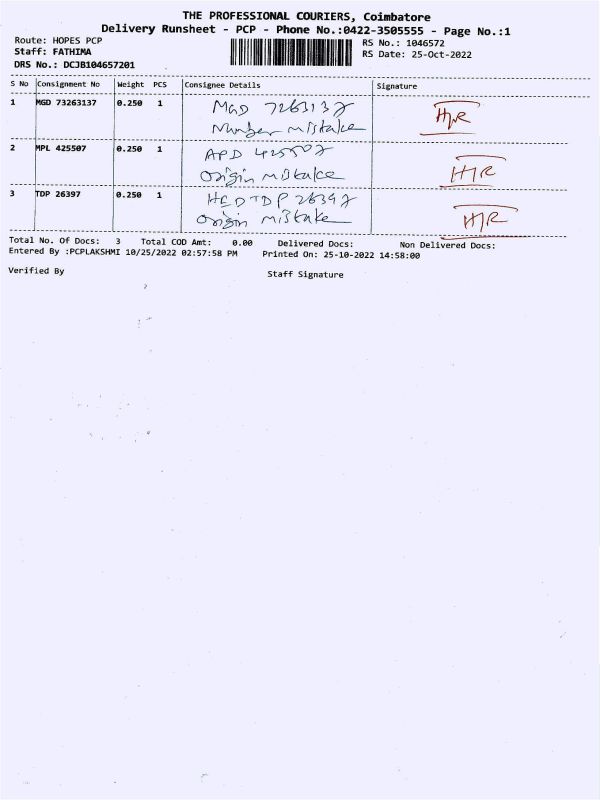 THE PROFESSIONAL COURIERS, Coimbatore
Delivery Runsheet - PCP - Phone No.:0422-3505555 - Page No.:1
Route: HOPES PCP
RS No.: 1046572
Staff: FATHIMA
RS Date: 25-Oct-2022
DRS No.: DCJB104657201
S No Consignment No Weight PCS Consignee Details Signature
1 MGD 73263137 0.250 1 MGD 7263137 H/R
Number mistake
2 MPL 425507 0.250 1 APD 425507 H/R
Origin mistake
3 TDP 26397 0.250 1 HCD TDP 26397 H/R
Origin mistake
Total No. Of Docs: 3 Total COD Amt: 0.00 Delivered Docs: Non Delivered Docs:
Entered By :PCPLAKSHMI 10/25/2022 02:57:58 PM Printed On: 25-10-2022 14:58:00
Verified By Staff Signature